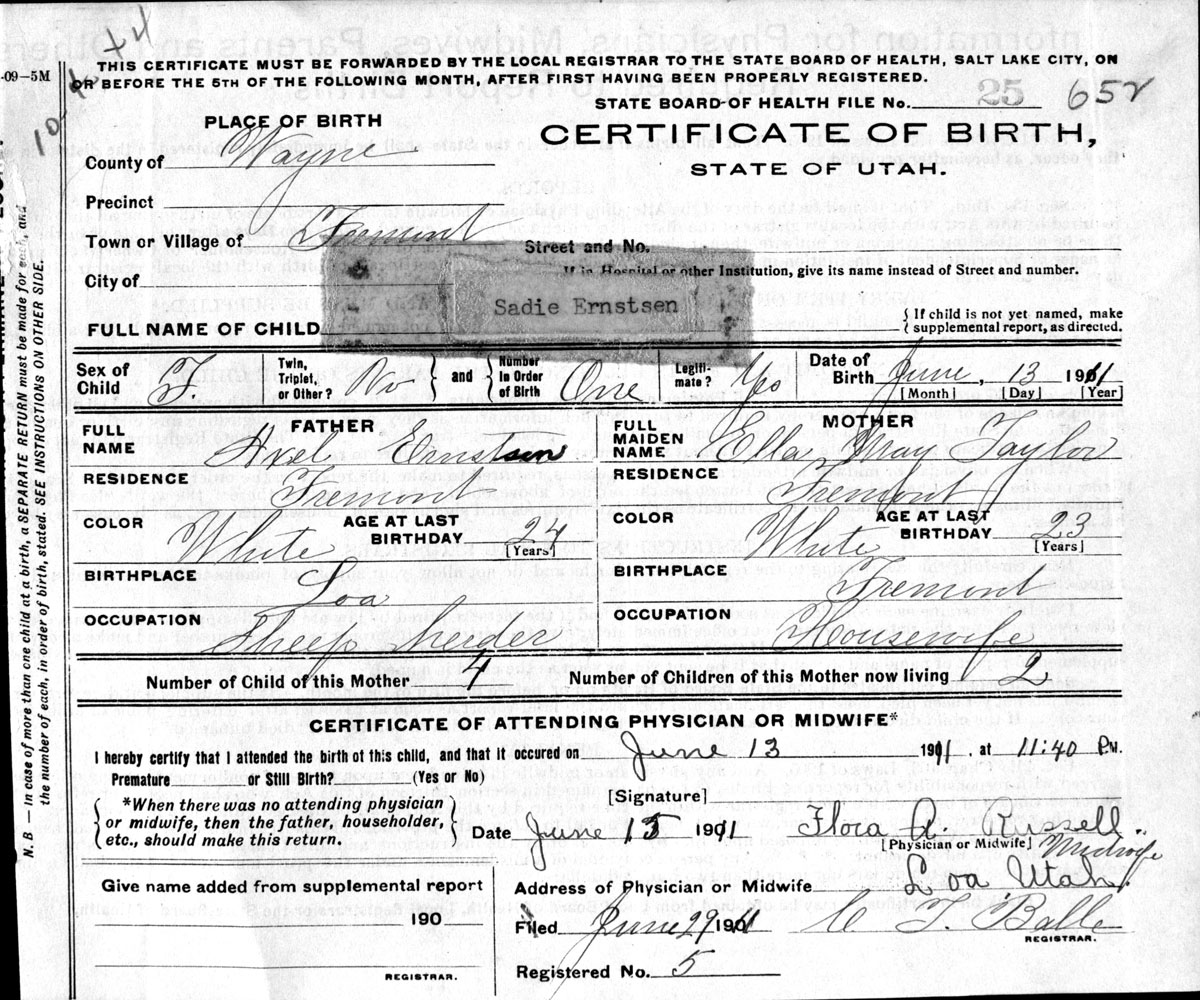 -09-5M
THIS CERTIFICATE MUST BE FORWARDED BY THE LOCAL REGISTRAR TO THE STATE BOARD OF HEALTH, SALT LAKE CITY, ON
OR BEFORE THE 5TH OF THE FOLLOWING MONTH, AFTER FIRST HAVING BEEN PROPERLY REGISTERED.
STATE BOARD OF HEALTH FILE No. 25 652
PLACE OF BIRTH
CERTIFICATE OF BIRTH,
STATE OF UTAH.
County of Wayne
Precinct
Town or Village of Fremont
Street and No.
If in Hospital or other Institution, give its name instead of Street and number.
City of
Sadie Ernstsen
FULL NAME OF CHILD
{ If child is not yet named, make
supplemental report, as directed.
Sex of Child F. Twin, Triplet, or Other? No and Number in Order of Birth One Legitimate? Yes Date of Birth June, 13 1911
[Month] [Day] [Year]
FATHER
FULL NAME Axel Ernstsen
RESIDENCE Fremont
COLOR White AGE AT LAST BIRTHDAY 24
[Years]
BIRTHPLACE Loa
OCCUPATION Sheep Herder
MOTHER
FULL MAIDEN NAME Ella May Taylor
RESIDENCE Fremont
COLOR White AGE AT LAST BIRTHDAY 23
[Years]
BIRTHPLACE Fremont
OCCUPATION Housewife
Number of Child of this Mother 4 Number of Children of this Mother now living 2
CERTIFICATE OF ATTENDING PHYSICIAN OR MIDWIFE*
I hereby certify that I attended the birth of this child, and that it occured on June 13 1911, at 11:40 P.M.
Premature or Still Birth? (Yes or No)
*When there was no attending physician
or midwife, then the father, householder,
etc., should make this return.
[Signature]
Date June 15 1911 Flora A. Russell
[Physician or Midwife] Midwife
Give name added from supplemental report
190
REGISTRAR.
Address of Physician or Midwife Loa Utah
Filed June 29 1911
REGISTRAR.
Registered No. 5
N. B. — In case of more than one child at a birth, a SEPARATE RETURN must be made for each, and
the number of each, in order of birth, stated. SEE INSTRUCTIONS ON OTHER SIDE.